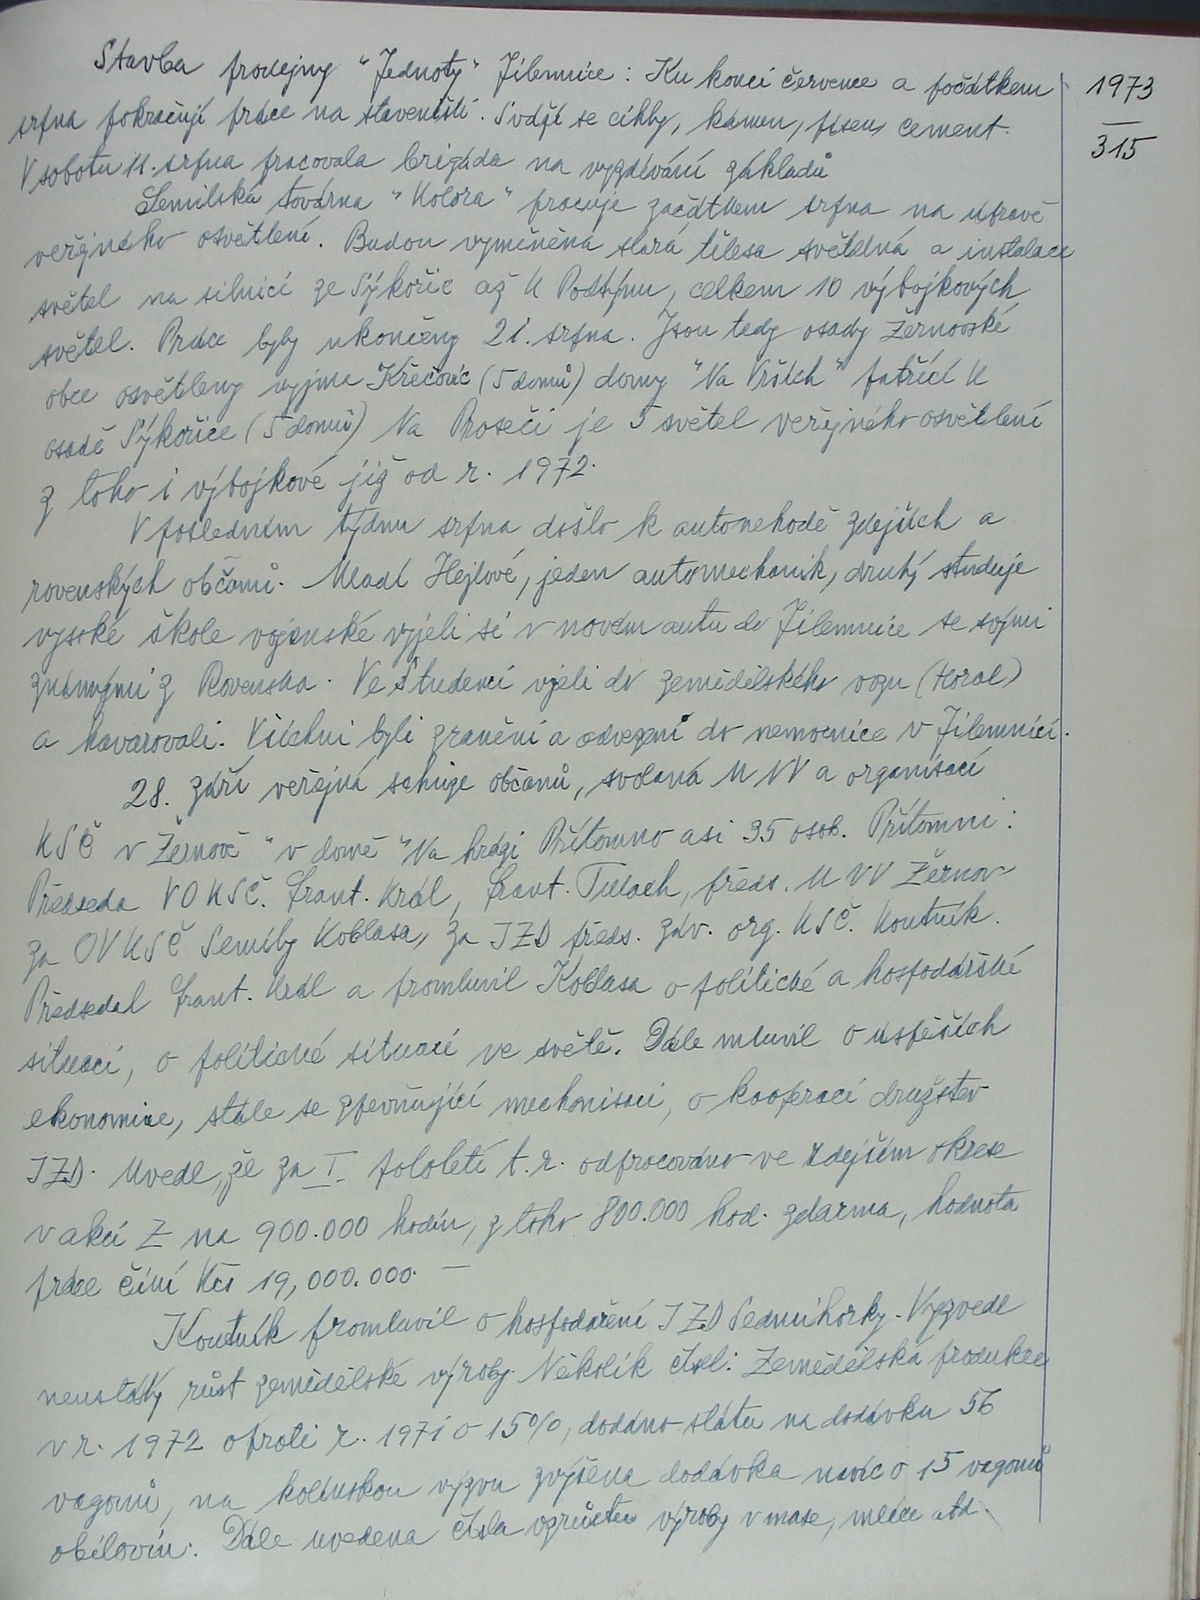 Stavba prodejny "Jednoty" Jilemnice: Ku konci července a počátkem
srpna pokračují práce na staveništi. Sváží se cihly, kámen, písek, cement.
V sobotu 11. srpna pracovala brigáda na vyzdívání základů
Semilská továrna "Kolora" pracuje začátkem srpna na úpravě
veřejného osvětlení. Budou vyměněna stará tělesa světelná a instalace
světel na silnici ze Sýkořic až k Podtýnu, celkem 10 výbojkových
světel. Práce byly ukončeny 21. srpna. Jsou tedy osady Žernovské
obce osvětleny vyjma Křečovic (5 domů) domy "Na Vrších" patřící k
osadě Sýkořice (5 domů) Na Proseči je 5 světel veřejného osvětlení
z toho i výbojkové již od r. 1972.
V posledním týdnu srpna došlo k autonehodě zdejších a
rovenských občanů. Mladí Hejlové, jeden automechanik, druhý studuje
vysoké škole vojenské vyjeli si v novém autu do Jilemnice se svými
známými z Rovenska. Ve Studenci vjeli do zemědělského vozu (Horal)
a havarovali. Všichni byli zraněni a odvezeni do nemocnice v Jilemnici.
28. září veřejná schůze občanů, svolaná MNV a organisací
KSČ v Žernově " v domě "Na hrázi Přítomno asi 35 osob. Přítomni:
Předseda VO KSČ. Frant. Král, Frant. Tulach, předs. MNV Žernov
za OV KSČ Semily Koblasa, za JZD předs. záv. org. KSČ. Koutník.
Předsedal Frant. Král a promluvil Koblasa o politické a hospodářské
situaci, o politické situaci ve světě. Dále mluvil o úspěších
ekonomice, stále se zpevňující mechanisaci, o kooperaci družstev
JZD. Uvedl, že za I. pololetí t.r. odpracováno ve zdejším okrese
v akci Z na 900.000 hodin, z toho 800.000 hod. zdarma, hodnota
práce činí Kčs 19,000.000. —
Koutník promluvil o hospodaření JZD Sedmihorky. Vyzvedl
neustálý růst zemědělské výroby. Několik čísel: Zemědělská produkce
v r. 1972 oproti r. 1971 o 15%, dodáno státu na dodávku 56
vagonů, na kolínskou výzvu zvýšena dodávka navíc o 15 vagonů
obilovin. Dále uvedena čísla vzrůstu výroby v mase, mléce atd.
1973
—
315